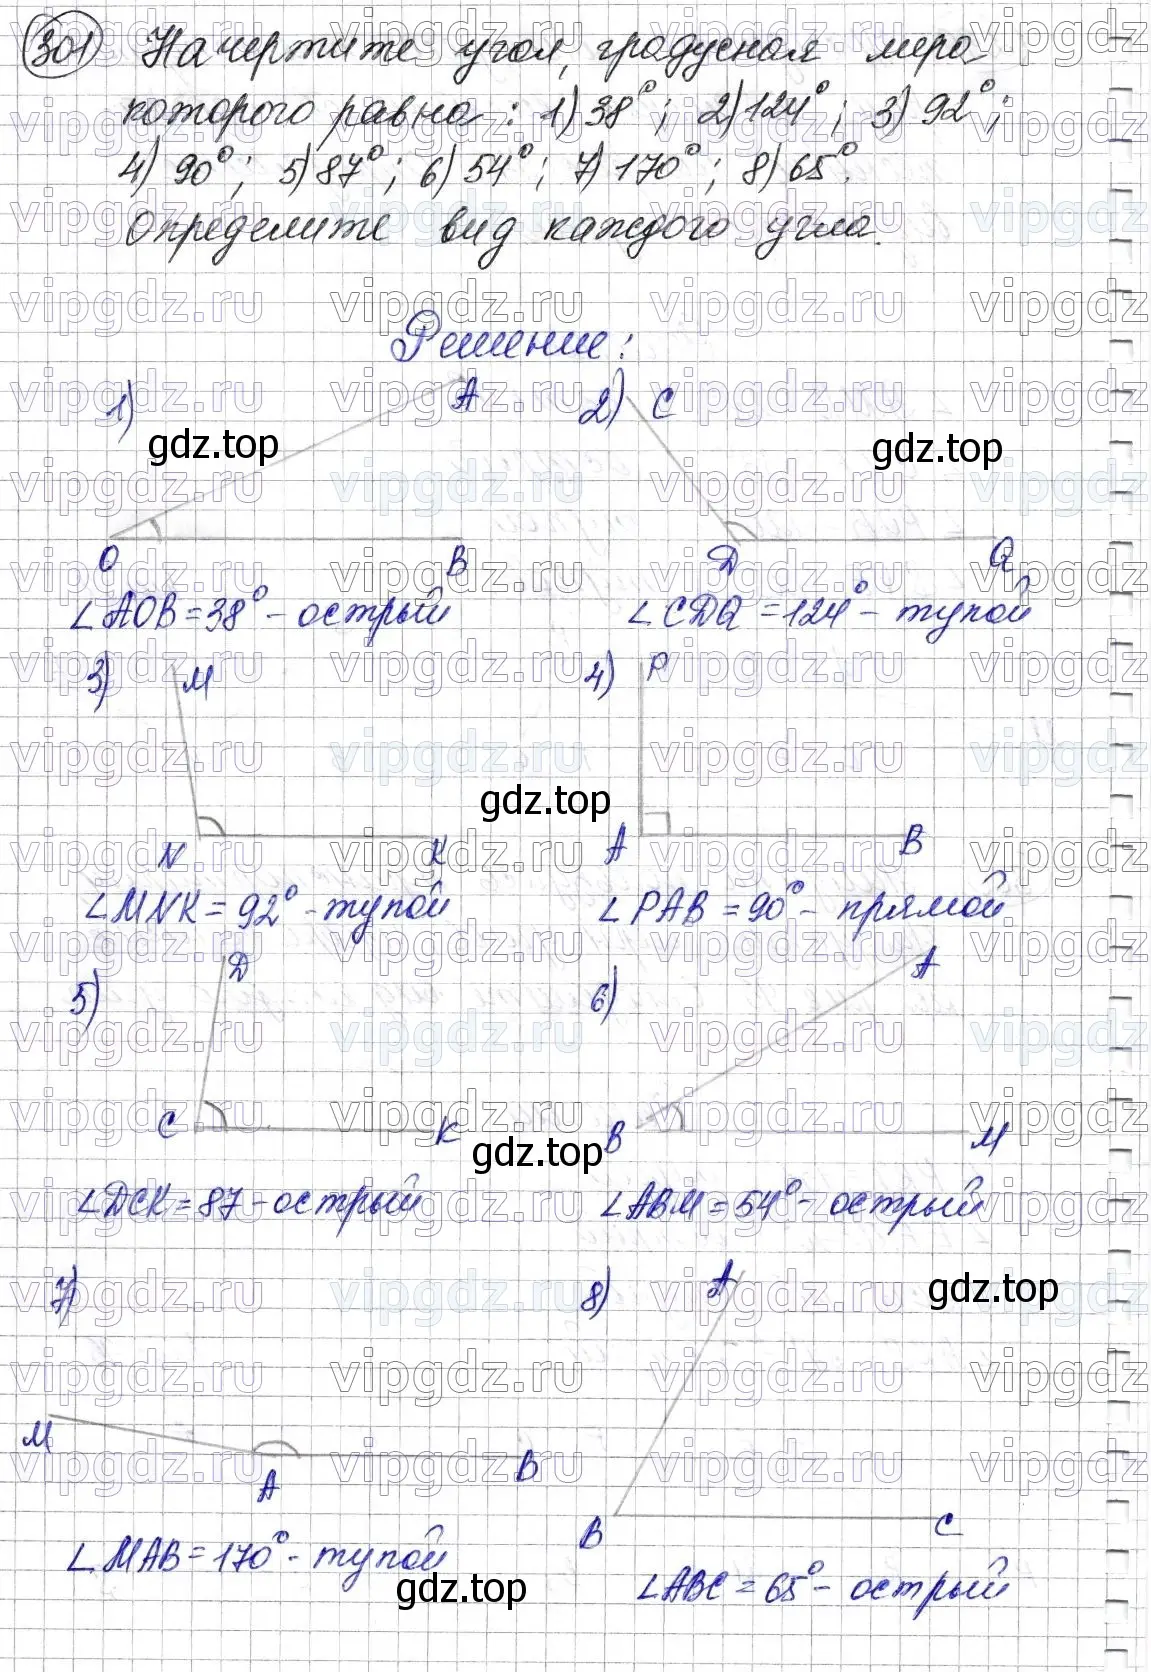 301 Начертите угол, градусная мера
которого равна: 1) 38°; 2) 124°; 3) 92°;
4) 90°; 5) 87°; 6) 54°; 7) 170°; 8) 65°.
Определите вид каждого угла.
Решение:
1) A 2) C
gdz.top gdz.top
O B D Q
∠AOB = 38° - острый ∠CDQ = 124° - тупой
3) M 4) P
gdz.top
N K A B
∠MNK = 92° - тупой ∠PAB = 90° - прямой
5) D 6) A
C K B M
gdz.top
∠DCK = 87 - острый ∠ABM = 54° - острый
7) 8) A
gdz.top
M A B
B C
∠MAB = 170° - тупой ∠ABC = 65° - острый
gdz.top
vipgdz.ru